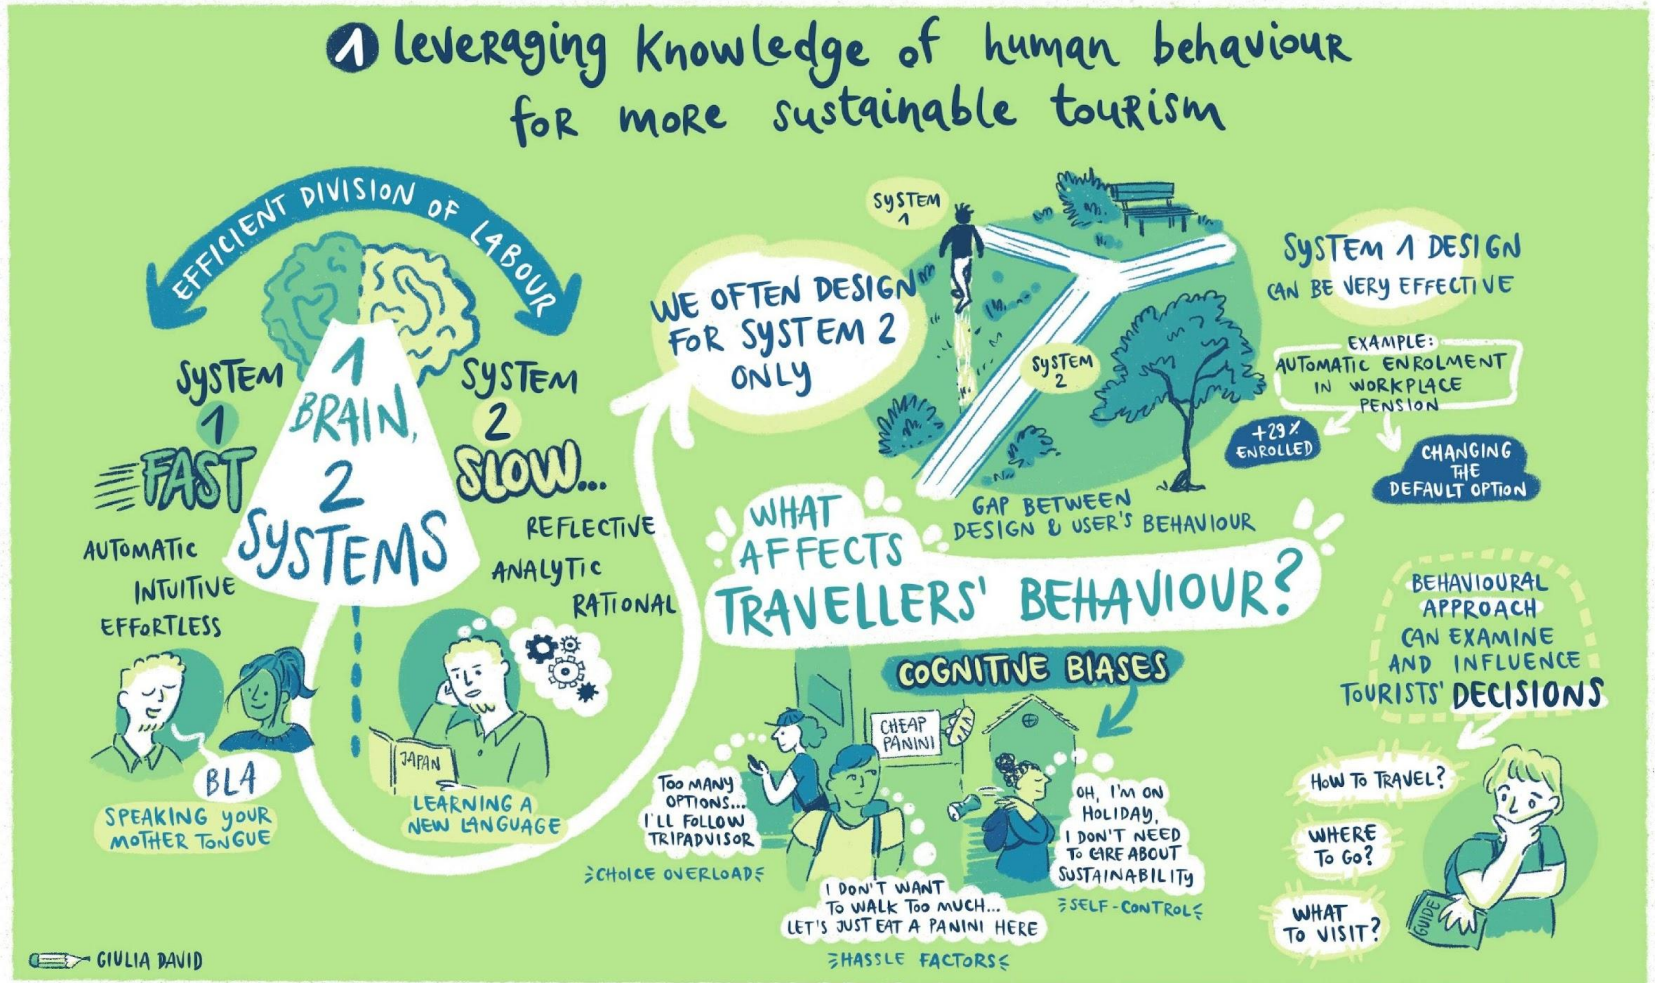 1 Leveraging Knowledge of human behaviour
for more sustainable tourism
EFFICIENT DIVISION OF LABOUR
1
BRAIN,
2
SYSTEMS
SYSTEM
1
FAST
AUTOMATIC
INTUITIVE
EFFORTLESS
BLA
SPEAKING YOUR
MOTHER TONGUE
SYSTEM
2
SLOW...
REFLECTIVE
ANALYTIC
RATIONAL
JAPAN
LEARNING A
NEW LANGUAGE
WE OFTEN DESIGN
FOR SYSTEM 2
ONLY
SYSTEM
1
SYSTEM
2
GAP BETWEEN
DESIGN & USER'S BEHAVIOUR
SYSTEM 1 DESIGN
CAN BE VERY EFFECTIVE
EXAMPLE:
AUTOMATIC ENROLMENT
IN WORKPLACE
PENSION
+29%
ENROLLED
CHANGING
THE
DEFAULT OPTION
WHAT
AFFECTS
TRAVELLERS' BEHAVIOUR?
COGNITIVE BIASES
CHEAP
PANINI
TOO MANY
OPTIONS...
I'LL FOLLOW
TRIPADVISOR
CHOICE OVERLOAD
I DON'T WANT
TO WALK TOO MUCH...
LET'S JUST EAT A PANINI HERE
HASSLE FACTORS
OH, I'M ON
HOLIDAY,
I DON'T NEED
TO CARE ABOUT
SUSTAINABILITY
SELF-CONTROL
BEHAVIOURAL
APPROACH
CAN EXAMINE
AND INFLUENCE
TOURISTS' DECISIONS
HOW TO TRAVEL?
WHERE
TO GO?
WHAT
TO VISIT?
GUIDE
GIULIA DAVID